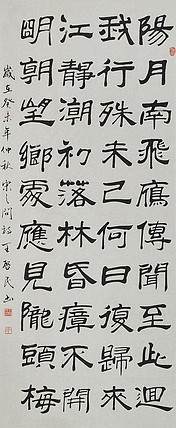 陽月南飛鴈傳聞至此迴
我行殊未已何日復歸來
江靜潮初落林昏瘴不開
眀朝望鄉處應見隴頭梅
歲在癸未年仲秋宋之問詩王啓民书